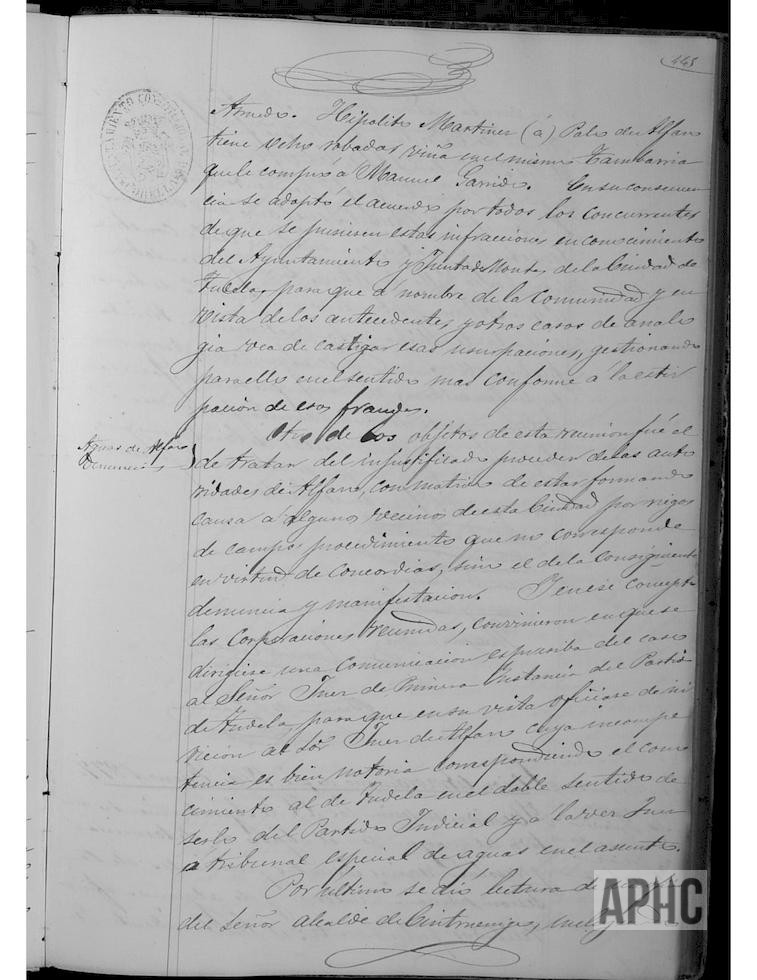 445
Arnedo. Hipolito Martinez (á) Palo de Alfaro
tiene ocho robadas viña en el mismo Tambarria
que le compró á Manuel Garrido. En su consecuen
cia se adoptó el acuerdo por todos los concurrentes
de que se pusiesen estas infracciones en conocimiento
del Ayuntamiento y Junta de Montes de la Ciudad de
Tudela, para que á nombre de la Comunidad y en
vista de los antecedentes y otros casos de analo
gia vea de castigar esas usurpaciones, gestionando
para ello en el sentido mas conforme á la estir
pacion de esos fraudes.
Aguas de Alfaro
Denuncias
Otro de los objetos de esta reunion fué el
de tratar del injustificado proceder de las auto
ridades de Alfaro, con motivo de estar formando
causa á algunos vecinos de esta Ciudad por riegos
de campos, procedimiento que no corresponde
en virtud de Concordias, sino el de la consiguiente
denuncia y manifestacion. Y en ese concepto
las Corporaciones reunidas, convinieron en que se
dirigiese una comunicacion espresiba del caso
al Señor Juez de Primera Instancia del Partido
de Tudela, para que en su vista oficiase de ini
vicion al Sor Juez de Alfaro cuya incompe
tencia es bien notoria correspondiendo el cono
cimiento al de Tudela en el doble sentido de
serlo del Partido Judicial y á la vez Juez
ó tribunal especial de aguas en el asunto.
Por último se dió lectura de
del Señor alcalde de Cintruenigo,
APHC